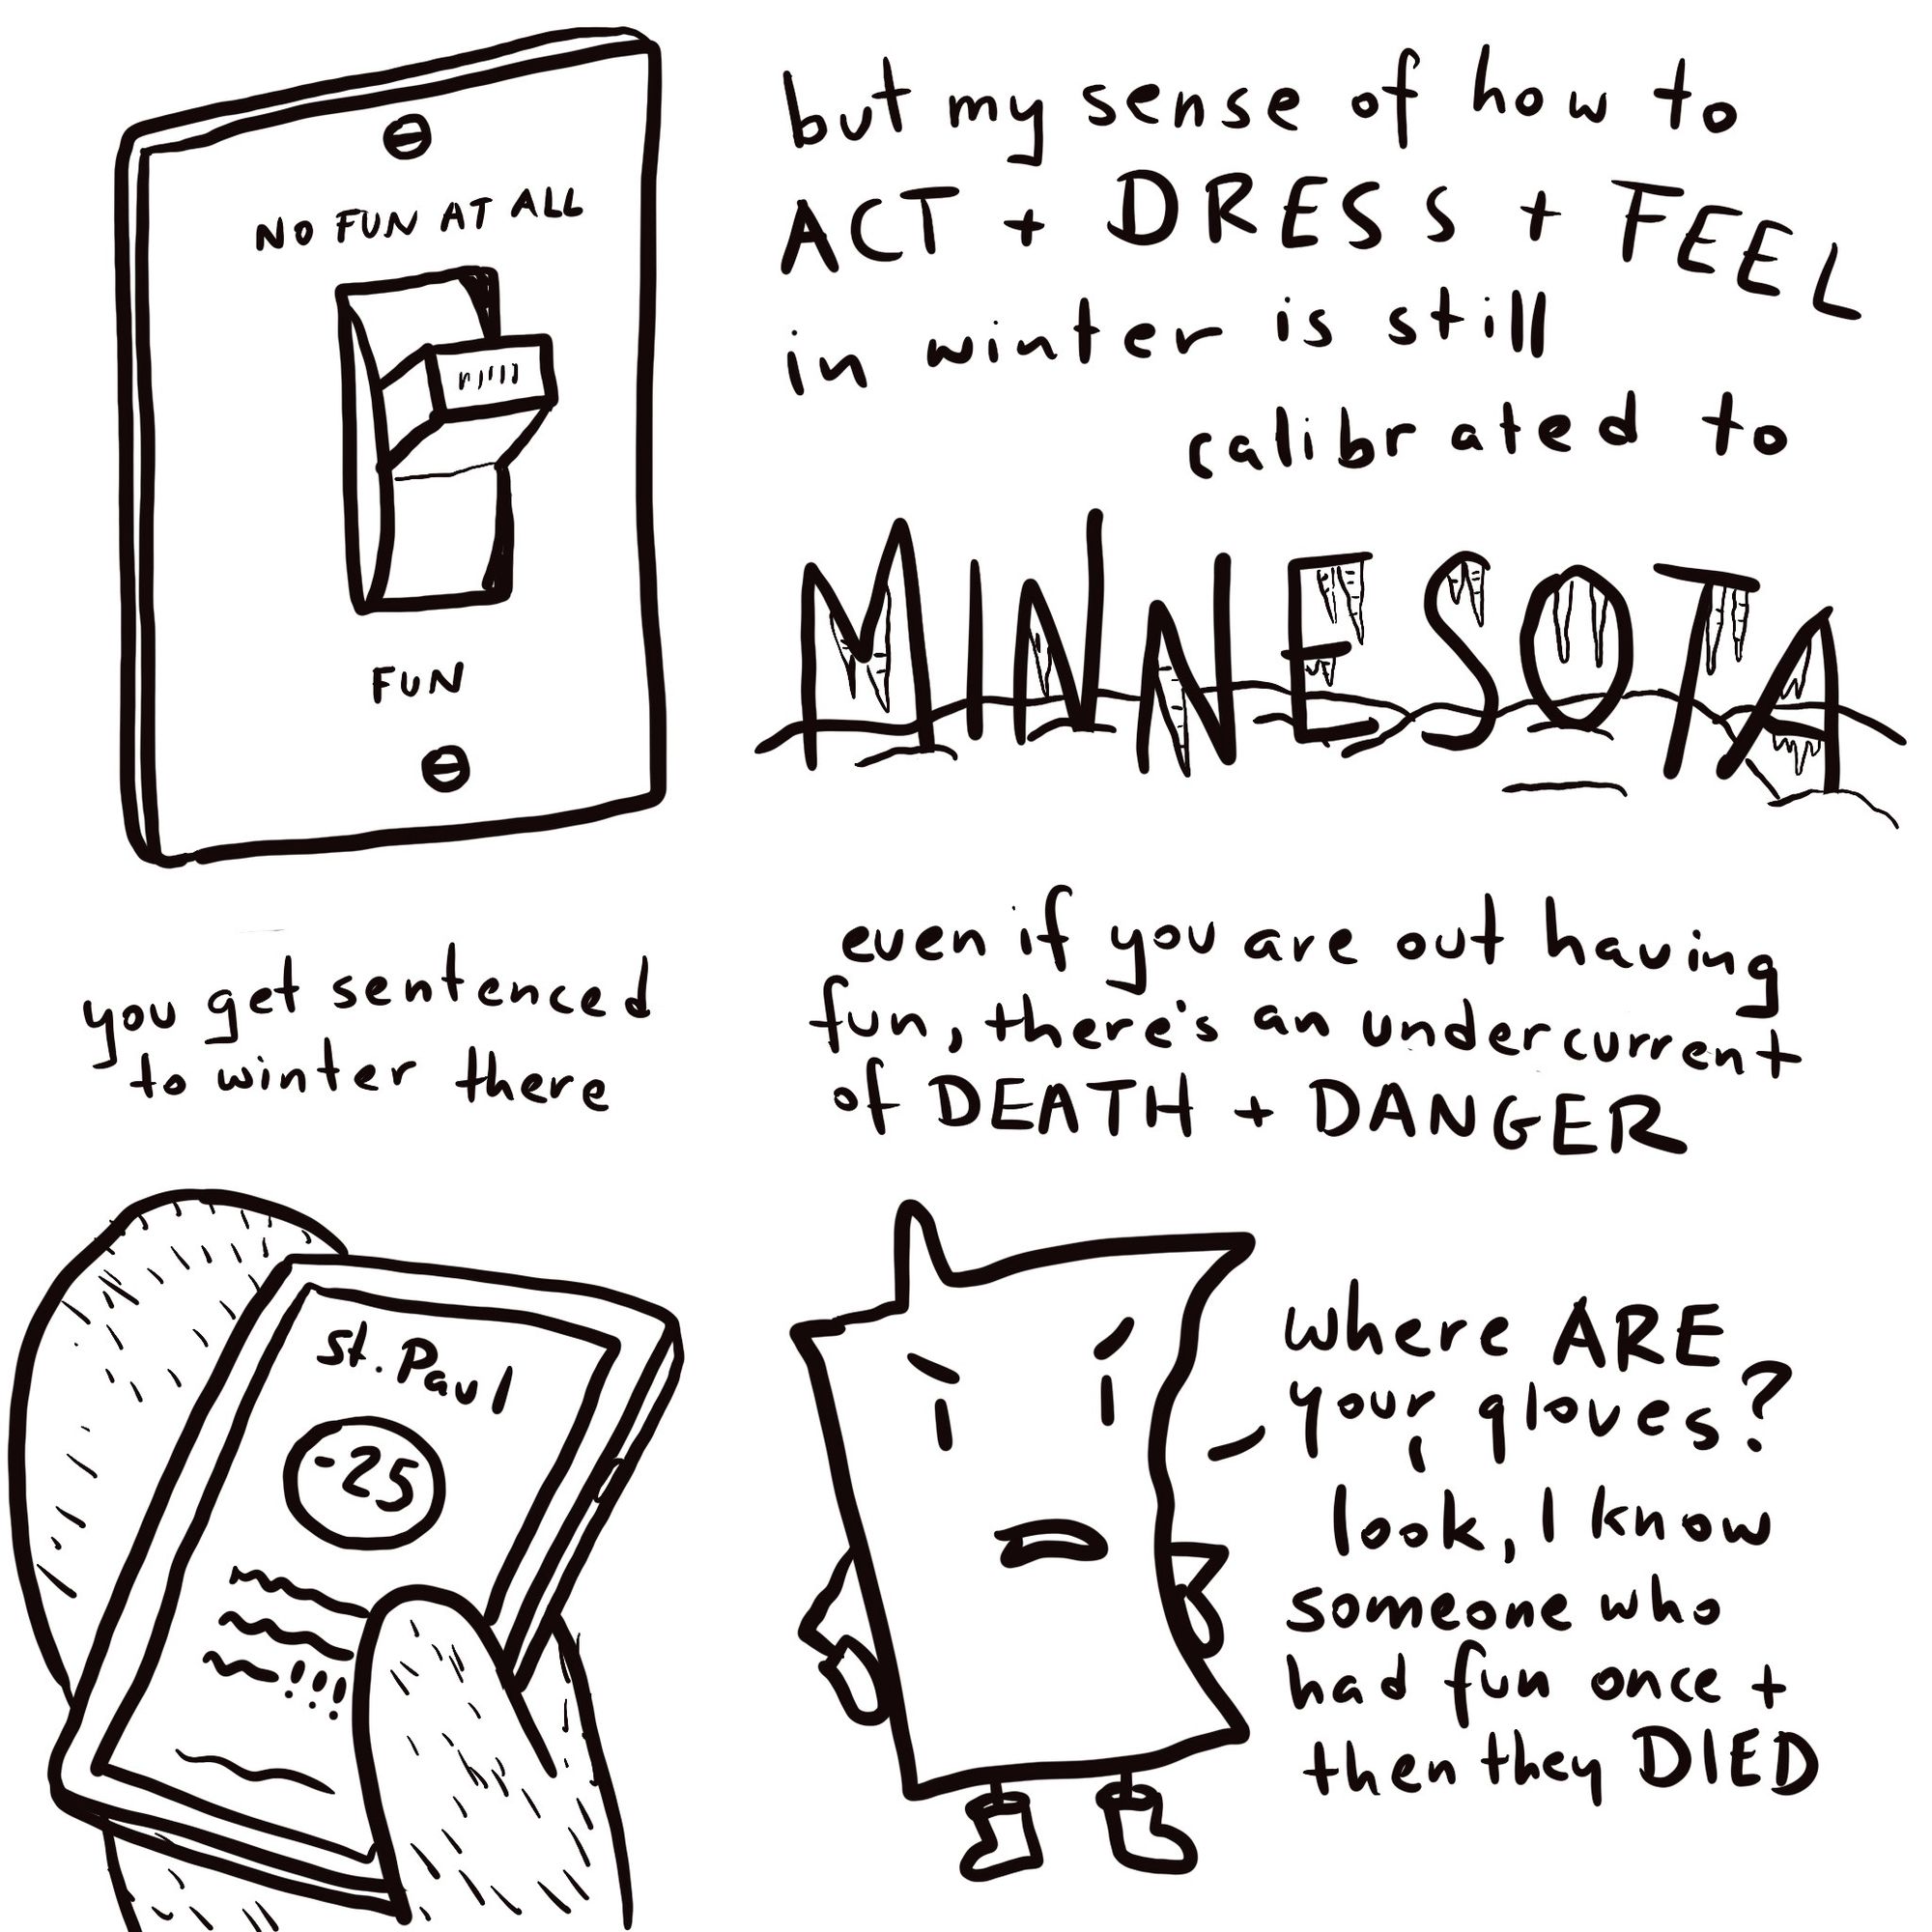 NO FUN AT ALL
FUN
but my sense of how to
ACT + DRESS + FEEL
in winter is still
calibrated to
MINNESOTA
you get sentenced
to winter there
even if you are out having
fun, there's an undercurrent
of DEATH + DANGER
St. Paul
-25
!!!
where ARE
your gloves?
look, I know
someone who
had fun once +
then they DIED